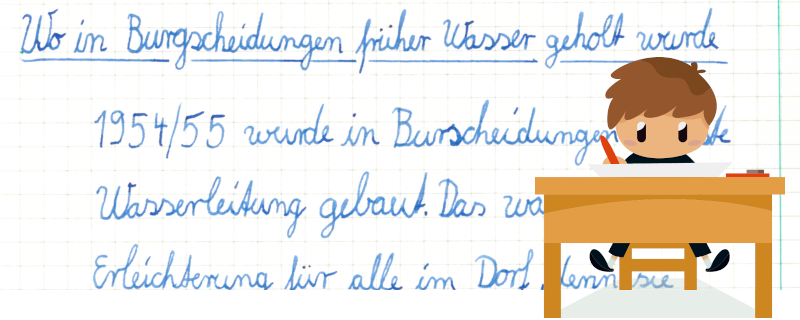 Wo in Burgscheidungen früher Wasser geholt wurde
1954/55 wurde in Burscheidungen
Wasserleitung gebaut. Das
Erleichterung für alle im Dorf, denn sie